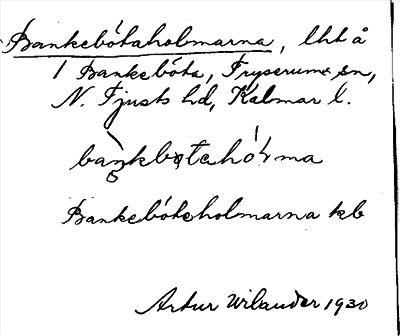 Bankebótaholmarna, lht å
1 Bankebóta, Tryserums sn,
N. Tjusts hd, Kalmar l.
Bankebóteholmarna kb
Artur Wilander 1930